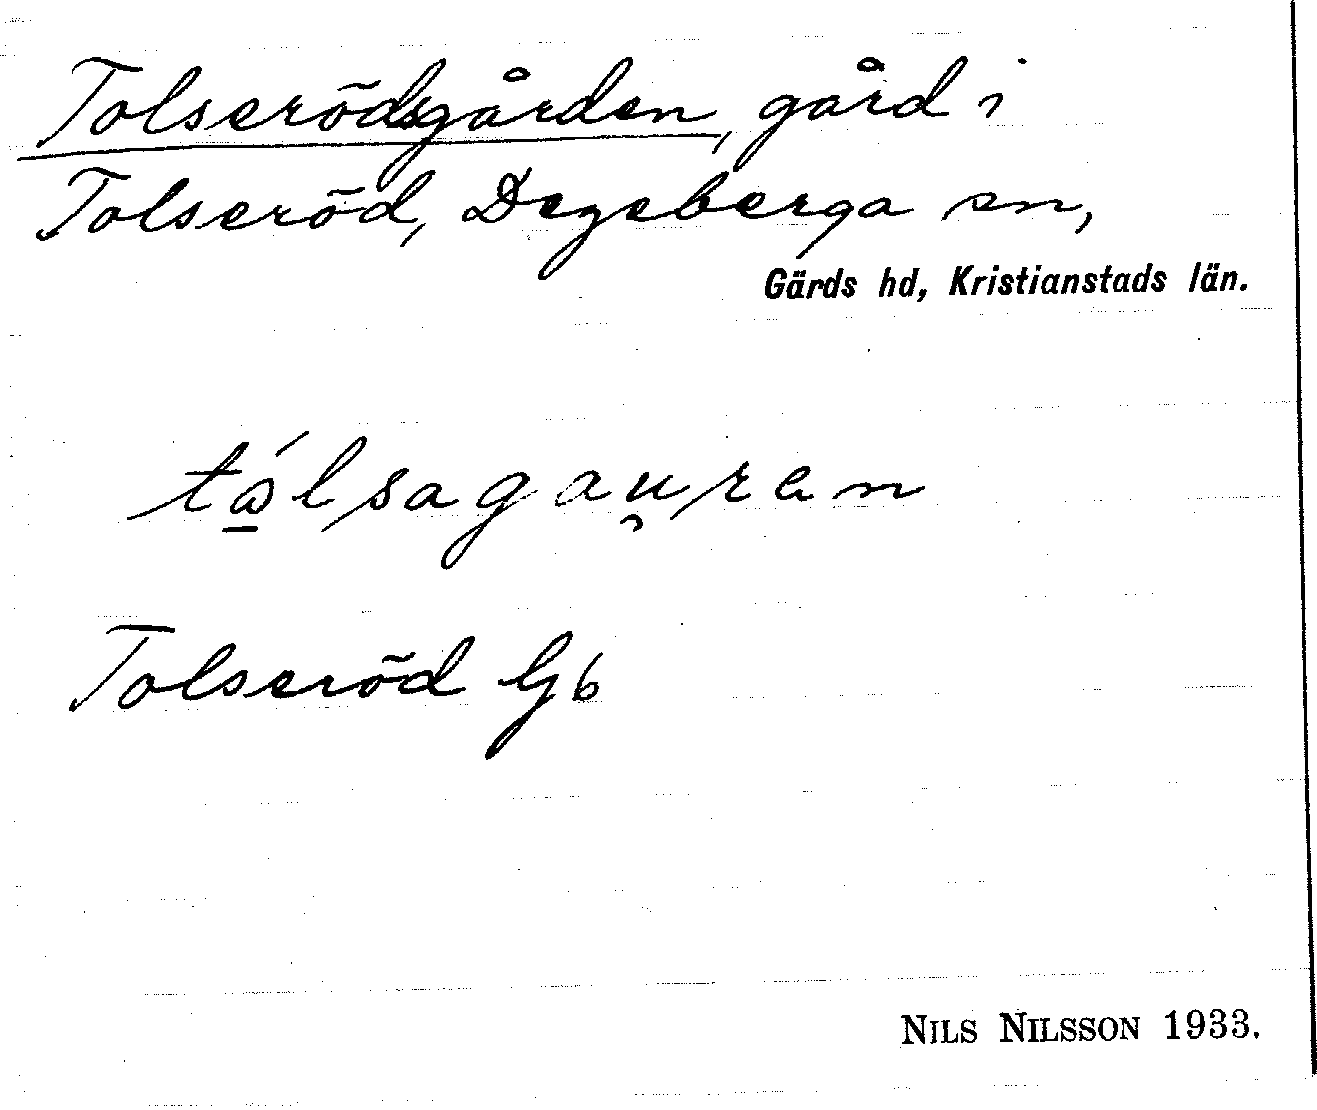 Tolserödsgården, gård i
Tolseröd, Degeberga sn,
Gärds hd, Kristianstads län.
tǻ̱lsagau̯ren
Tolseröd Gb
NILS NILSSON 1933.